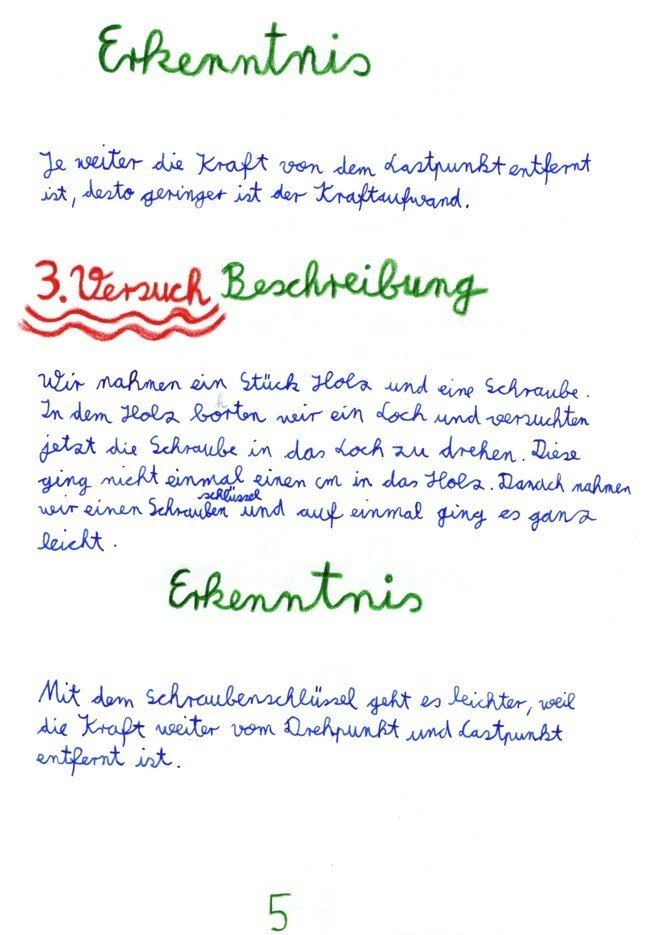 Erkenntnis
Je weiter die Kraft von dem Lastpunkt entfernt
ist, desto geringer ist der Kraftaufwand.
3. Versuch Beschreibung
Wir nahmen ein Stück Holz und eine Schraube.
In dem Holz bohrten wir ein Loch und versuchten
jetzt die Schraube in das Loch zu drehen. Diese
ging nicht einmal einen cm in das Holz. Danach nahmen
wir einen Schraubenschlüssel und auf einmal ging es ganz
leicht.
Erkenntnis
Mit dem Schraubenschlüssel geht es leichter, weil
die Kraft weiter vom Drehpunkt und Lastpunkt
entfernt ist.
5